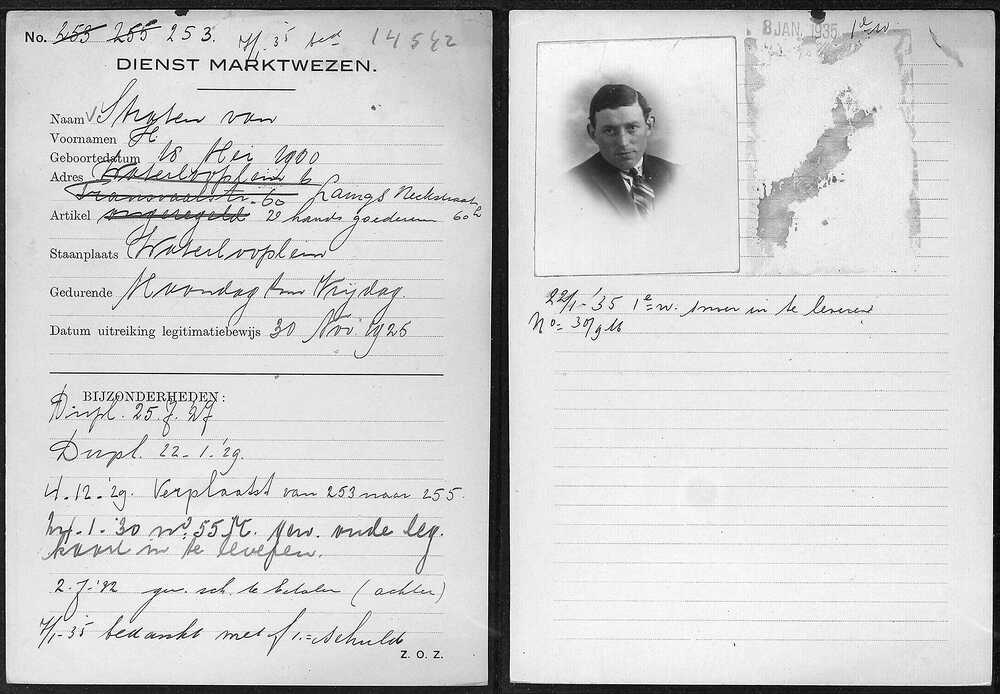 No. 253 255 253. 7/1.35 bed 14542
DIENST MARKTWEZEN.
Naam v Straten van
Voornamen H
Geboortedatum 18 Mei 1900
Adres Waterlooplein 6
Transvaalstr. 60 Lange Neckstraat
Artikel ongeregeld 2e hands goederen 60 h
Staanplaats Waterlooplein
Gedurende Maandag t/m Vrijdag.
Datum uitreiking legitimatiebewijs 30 Nov. 1925
BIJZONDERHEDEN:
Dupl. 25. 7. 27
Dupl. 22-1-'29.
4-12-'29. Verplaatst van 253 naar 255.
1-'30 no. 55 M. gew. oude leg.
kaart in te leveren.
2-7-'32 gew. sch. te betalen (achter)
7/1-35 bedankt met f 1.= schuld
Z. O. Z.
8 JAN. 1935 1e w
22/1-'35 1e w. in te leveren
No= 307